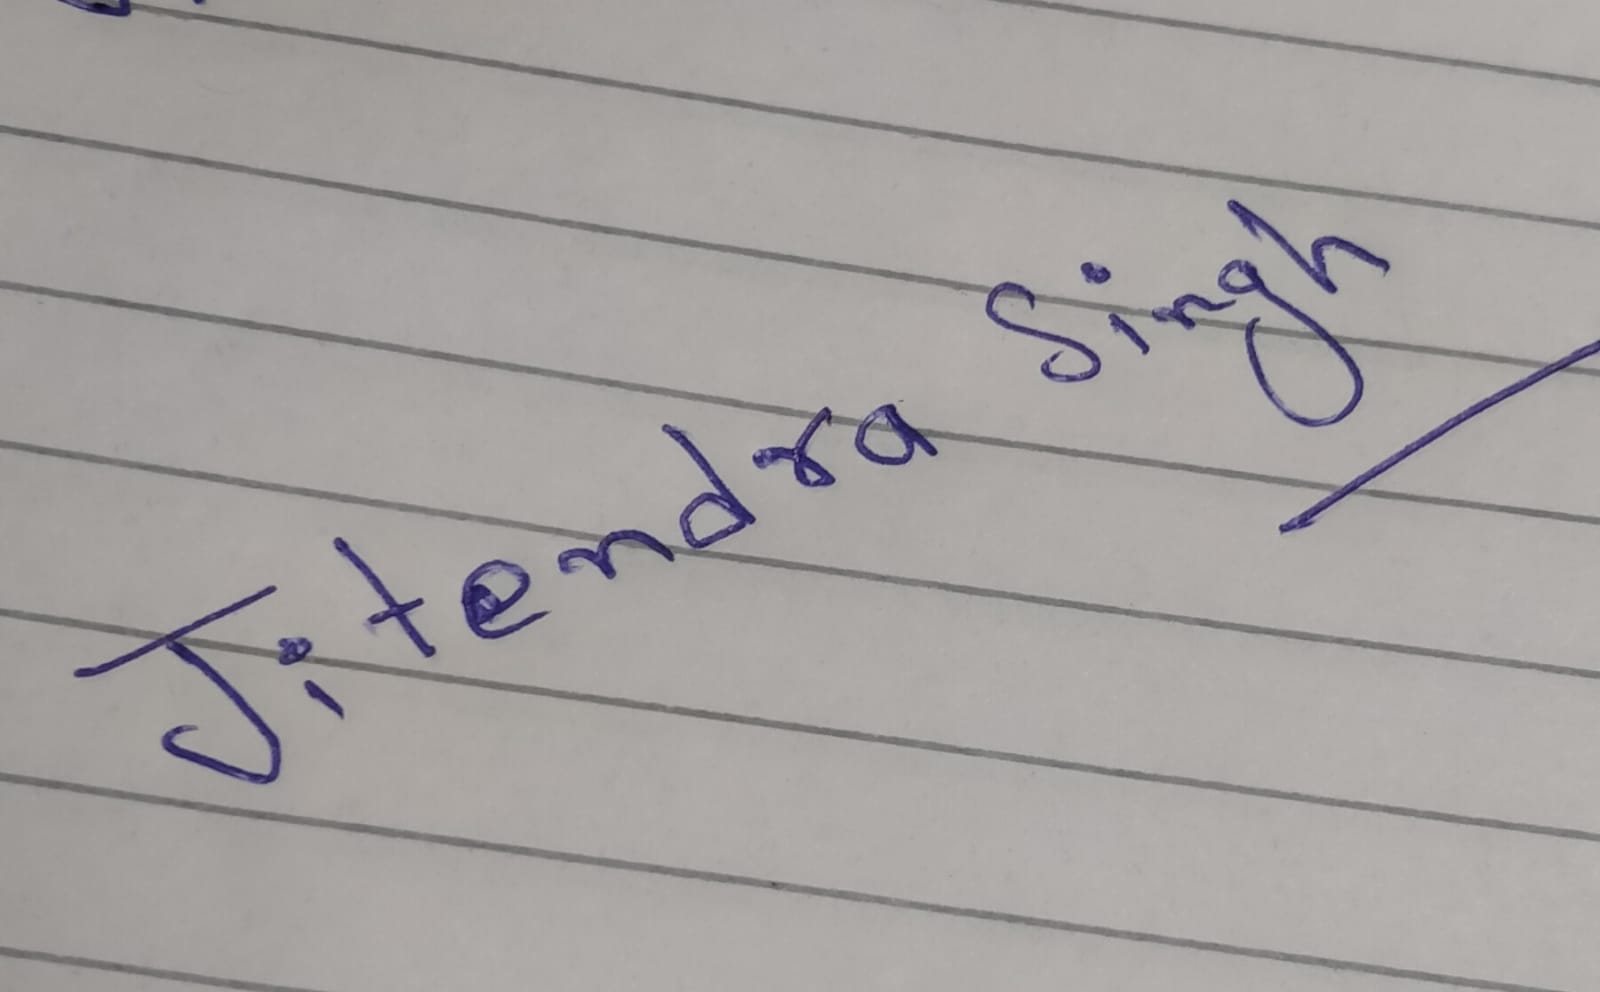 Jitendra Singh